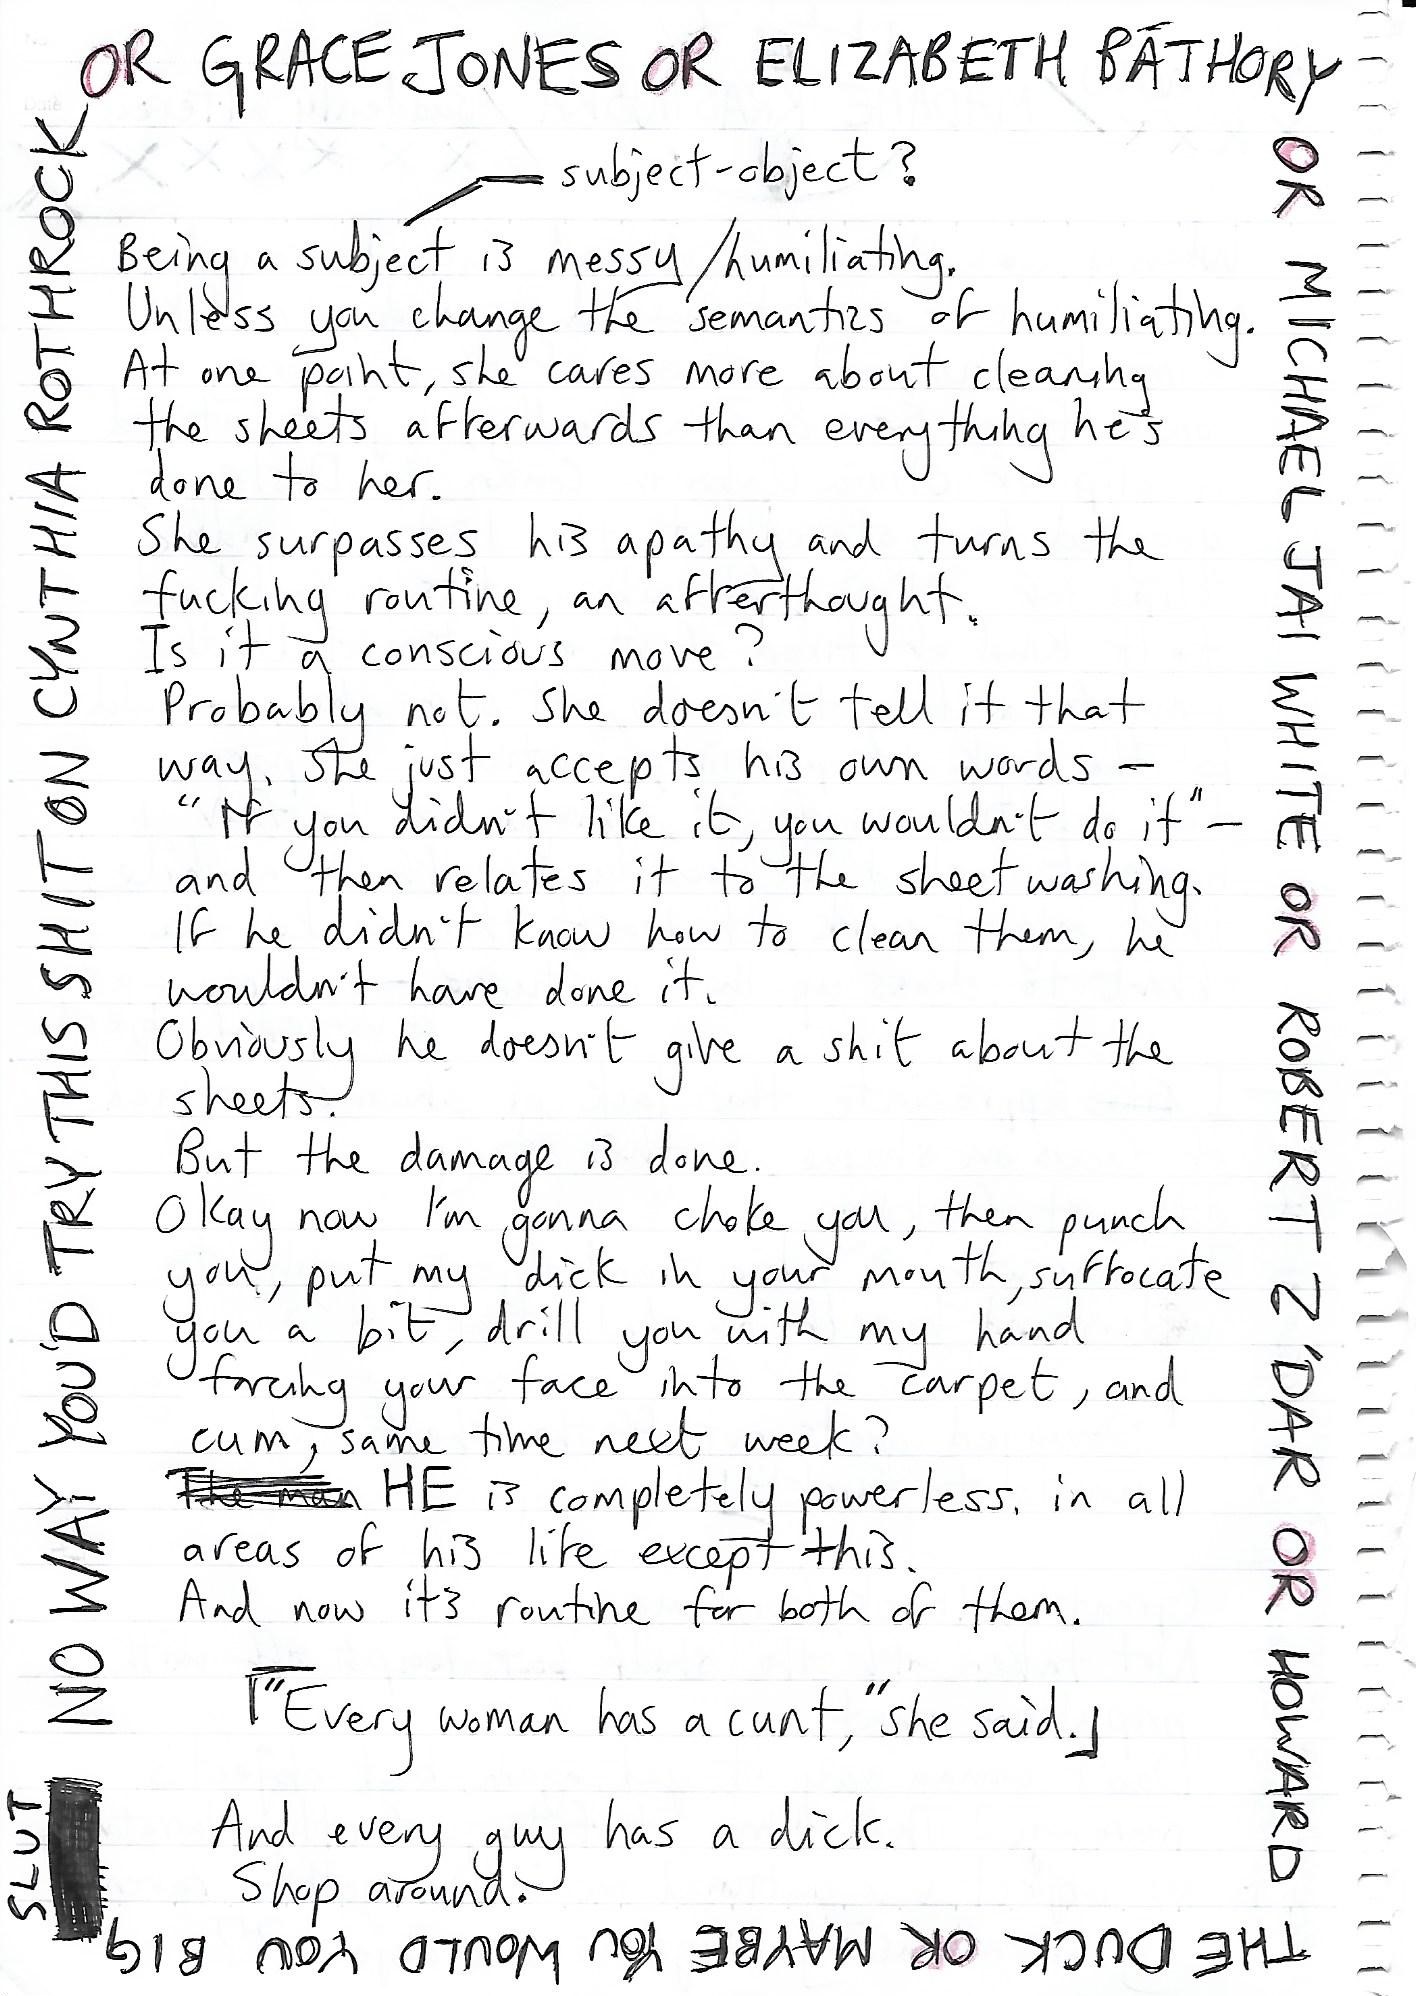 NO WAY YOU'D TRY THIS SHIT ON CYNTHIA ROTHROCK
OR GRACE JONES OR ELIZABETH BÁTHORY
OR MICHAEL JAI WHITE OR ROBERT Z'DAR OR HOWARD
THE DUCK OR MAYBE YOU WOULD YOU BIG
SLUT
subject-object?
Being a subject is messy/humiliating.
Unless you change the semantics of humiliating.
At one point, she cares more about cleaning
the sheets afterwards than everything he's
done to her.
She surpasses his apathy and turns the
fucking routine, an afterthought.
Is it a conscious move?
Probably not. She doesn't tell it that
way. She just accepts his own words –
"If you didn't like it, you wouldn't do it" –
and then relates it to the sheet washing.
If he didn't know how to clean them, he
wouldn't have done it.
Obviously he doesn't give a shit about the
sheets.
But the damage is done.
Okay now I'm gonna choke you, then punch
you, put my dick in your mouth, suffocate
you a bit, drill you with my hand
forcing your face into the carpet, and
cum, same time next week?
The man HE is completely powerless. in all
areas of his life except this.
And now it's routine for both of them.
「"Every woman has a cunt," she said.」
And every guy has a dick.
Shop around.